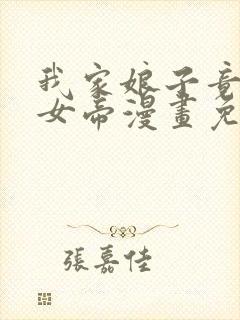 我家娘子竟
女帝漫畫免
張嘉佳